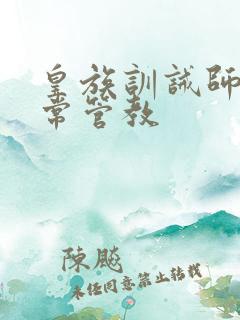 皇族訓誡師日
常管教
陳飈
未经同意禁止转载